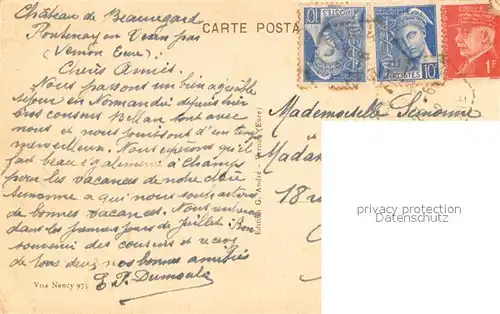 Château de Beauregard
Fontenay en Vexin par
(Vernon Eure)
Chers Amies.
Nous passons un bien agréable
séjour en Normandie depuis hier
les cousins sont avec
nous et nous jouissons d'un temps
merveilleux. Nous espérons qu'il
fait beau également à Champs
pour les vacances de notre chère
Simonne a qui nous souhaitons
de bonnes vacances. Nous rentrerons
dans les premiers jours de juillet. Bon
souvenir des cousins et recevez
de tous deux nos bonnes amitiés
E. P. Dumoulz
Vita Nancy 975
CARTE POSTA
Edition G. André - Vernon (Eure)
POSTES 10c
POSTES 10c
1F
Mademoiselle Simonne
et Madam
18 r
privacy protection
Datenschutz